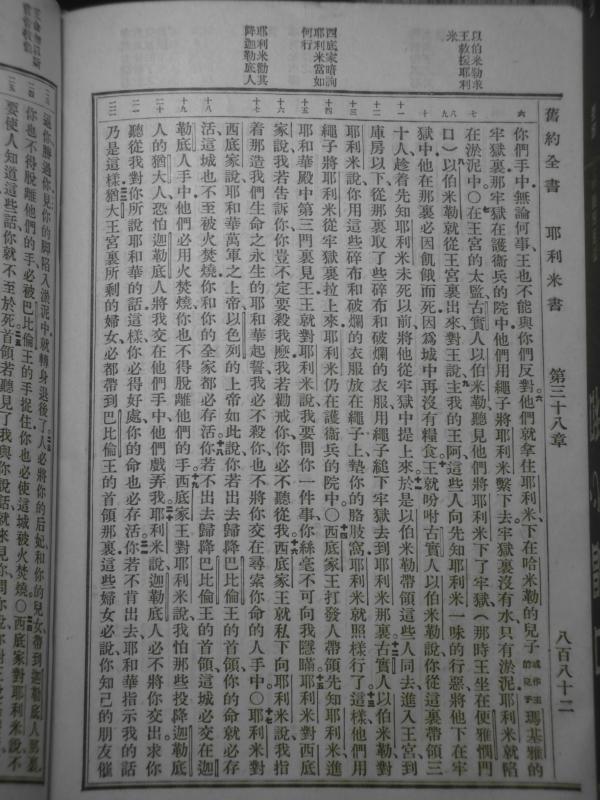 舊約全書 耶利米書 第三十八章 八百八十二
以伯米勒求
王救援耶利
米
西底家暗詢
耶利米當如
何行
耶利米勸其
降迦勒底人
你們手中無論何事王也不能與你們反對他們就拿住耶利米下在哈米勒的兒子或作王的兒子瑪基雅的
牢獄裏那牢獄在護衛兵的院中他們用繩子將耶利米繫下去牢獄裏沒有水只有淤泥耶利米就陷
在淤泥中〇在王宮的太監古實人以伯米勒聽見他們將耶利米下了牢獄(那時王坐在便雅憫門
口)以伯米勒就從王宮裏出來對王說主我的王阿這些人向先知耶利米一味的行惡將他下在牢
獄中他在那裏必因飢餓而死因爲城中再沒有糧食王就吩咐古實人以伯米勒說你從這裏帶領三
十人趁着先知耶利米未死以前將他從牢獄中提上來於是以伯米勒帶領這些人同去進入王宮到
庫房以下從那裏取了些碎布和破爛的衣服用繩子縋下牢獄去到耶利米那裏古實人以伯米勒對
耶利米說你用這些碎布和破爛的衣服放在繩子上墊你的胳肢窩耶利米就照樣行了這樣他們用
繩子將耶利米從牢獄裏拉上來耶利米仍在護衛兵的院中〇西底家王打發人帶領先知耶利米進
耶和華殿中第三門裏見王王就對耶利米說我要問你一件事你絲毫不可向我隱瞞耶利米對西底
家說我若告訴你你豈不定要殺我麼我若勸戒你你必不聽從我西底家王就私下向耶利米說我指
着那造我們生命之永生的耶和華起誓我必不殺你也不將你交在尋索你命的人手中〇耶利米對
西底家說耶和華萬軍之上帝以色列的上帝如此說你若出去歸降巴比倫王的首領你的命就必存
活這城也不至被火焚燒你和你的全家都必存活你若不出去歸降巴比倫王的首領這城必交在迦
勒底人手中他們必用火焚燒你也不得脫離他們的手西底家王對耶利米說我怕那些投降迦勒底
人的猶大人恐怕迦勒底人將我交在他們手中他們戲弄我耶利米說迦勒底人必不將你交出求你
聽從我對你所說耶和華的話這樣你必得好處你的命也必存活你若不肯出去耶和華指示我的話
乃是這樣猶大王宮裏所剩的婦女必都帶到巴比倫王的首領那裏這些婦女必說你知己的朋友催
逼你勝過你見你的脚陷入淤泥中就轉身退後了人必將你的后妃和你的兒女帶到迦勒底人那裏
你也不得脫離他們的手必被巴比倫王的手捉住你也必使這城被火焚燒〇西底家對耶利米說不
要使人知道這些話你就不至於死首領若聽見了我與你說話就來見你